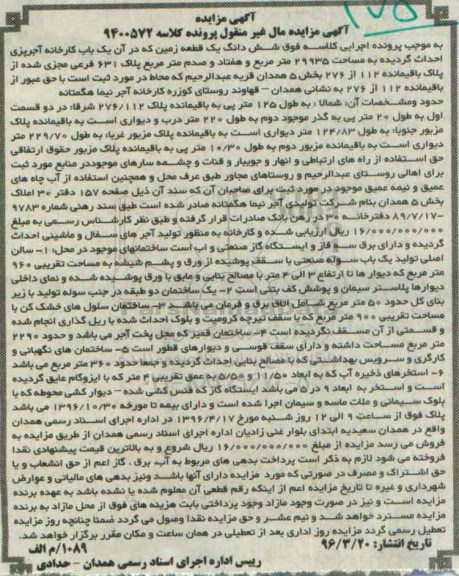 ۱۷۵
آگهی مزایده
آگهی مزایده مال غیر منقول پرونده کلاسه ۹۴۰۰۵۷۲
به موجب پرونده اجرایی کلاسه فوق شش دانگ یک قطعه زمین که در آن یک باب کارخانه آجرپزی
احداث گردیده به مساحت ۲۹۹۳۵ متر مربع و هفتاد و صدم متر مربع پلاک ۶۳۱ فرعی مجزی شده از
پلاک باقیمانده ۱۱۲ از ۲۷۶ بخش ۵ همدان قریه عبدالرحیم که محاط در مورد ثبت است با حق عبور از
باقیمانده ۱۱۲ از ۲۷۶ به نشانی همدان - قهاوند روستای کوزره کارخانه آجر نیما هگمتانه
حدود ومشخصات آن: شمالا : به طول ۱۲۵ متر پی به باقیمانده پلاک ۲۷۶/۱۱۲ شرقا: در دو قسمت
اول به طول ۲۰ متر پی به گذر موجود دوم به طول ۲۲۰ متر درب و دیواری است به باقیمانده پلاک
مزبور جنوبا: به طول ۱۲۴/۸۳ متر دیواری است به باقیمانده پلاک مزبور غربا، به طول ۲۲۹/۷۰ متر
دیواری است به باقیمانده مزبور دوم به طول ۱۰/۳۰ متر پی به باقیمانده پلاک مزبور حقوق ارتفاقی
حق استفاده از راه های ارتباطی و انهار و جویبار و قنات و چشمه سارهای موجوددر منابع مورد ثبت
برای اهالی روستای عبدالرحیم و روستاهای مجاور طبق عرف محل و همچنین استفاده از آب چاه های
عمیق و نیمه عمیق موجود در مورد ثبت برای صاحبان آن که سند آن ذیل صفحه ۱۵۷ دفتر ۳۰ املاک
بخش ۵ همدان بنام شرکت تولیدی آجر نیما هگمتانه صادر شده است طبق سند رهنی شماره ۹۷۸۳
-۸۹/۷/۱۷ دفترخانه ۳۰ در رهن بانک صادرات قرار گرفته و طبق نظر کارشناس رسمی به مبلغ
۱۶/۰۰۰/۰۰۰/۰۰۰ ریال ارزیابی شده و کارخانه به منظور تولید آجر های سفال و ماشینی احداث
گردیده و دارای برق سه فاز و ایستگاه گاز صنعتی و اب است ساختمانهای موجود در محل: ۱- سالن
اصلی تولید یک باب سوله صنعتی با سقف پوشیده از ورق و پشم شیشه به مساحت تقریبی ۹۶۰
متر مربع که دیوار ها تا ارتفاع ۳ الی ۴ متر با مصالح بنایی و مابق با ورق پوشیده شده و نمای داخلی
دیوارها پلاستر سیمان و پوشش کف بتنی است ۲- یک ساختمان دو طبقه در جنب سوله تولید با زیر
بنای کل حدود ۵۰ متر مربع شامل اتاق برق و فرمان می باشد ۳- ساختمان سلول های خشک کن با
مساحت تقریبی ۹۰۰ متر مربع که با سقف تیرچه کرومیت و بلوک احداث شده با ریل گذاری انجام شده
و قسمتی از آن مسقف نگردیده است ۴- ساختمان قمیر که محل پخت آجر می باشد و حدود ۲۲۹۰
متر مربع مساحت داشته و دارای سقف قوسی و دیوارهای قطور است ۵- ساختمان های نگهبانی و
کارگری و سرویس بهداشتی که با مصالح بنایی احداث گردیده و جمعا حدود ۳۶۰ متر مربع می باشد
۶- استخرهای ذخیره آب که به ابعاد ۱۱/۵۰ و ۵/۵۰ به عمق تقریبی ۴ متر که با ایزوگام عایق گردیده
است و استخر به ابعاد ۹ در ۵ می باشد ایستگاه گاز که فنس کشی شده - دیوار کشی محوطه که با
بلوک سیمانی و ملات ماسه و سیمان اجرا شده است و دارای بیمه تا مورخه ۱۳۹۶/۱۰/۳۰ می باشد
پلاک فوق از ساعت ۹ الی ۱۲ روز شنبه مورخ ۱۳۹۶/۴/۱۷ در اداره اجرای اسناد رسمی همدان
واقع در همدان سعیدیه ابتدای بلوار غنی زادیان اداره اجرای اسناد رسمی همدان از طریق مزایده به
فروش می رسد مزایده از مبلغ ۱۶/۰۰۰/۰۰۰/۰۰۰ ریال شروع و به بالاترین قیمت پیشنهادی نقدا
فروخته می شود لازم به ذکر است پرداخت بدهی های مربوط به آب، برق ، گاز اعم از حق انشعاب و یا
حق اشتراک و مصرف در صورتی که مورد مزایده دارای آنها باشد ونیز بدهی های مالیاتی و عوارض
شهرداری و غیره تا تاریخ مزایده اعم از اینکه رقم قطعی آن معلوم شده یا نشده باشد به عهده برنده
مزایده است و نیز در صورت وجود مازاد وجود پرداختی بابت هزینه های فوق از محل مازاد به برنده
مزایده مسترد خواهد شد و نیم عشر و حق مزایده نقدا وصول می گردد ضمنا چنانچه روز مزایده
تعطیل رسمی گردد مزایده روز اداری بعد از تعطیلی در همان ساعت و مکان مقرر برگزار خواهد شد.
تاریخ انتشار: ۹۶/۳/۲۰
۱۰۸۹/م الف
رییس اداره اجرای اسناد رسمی همدان - حدادی